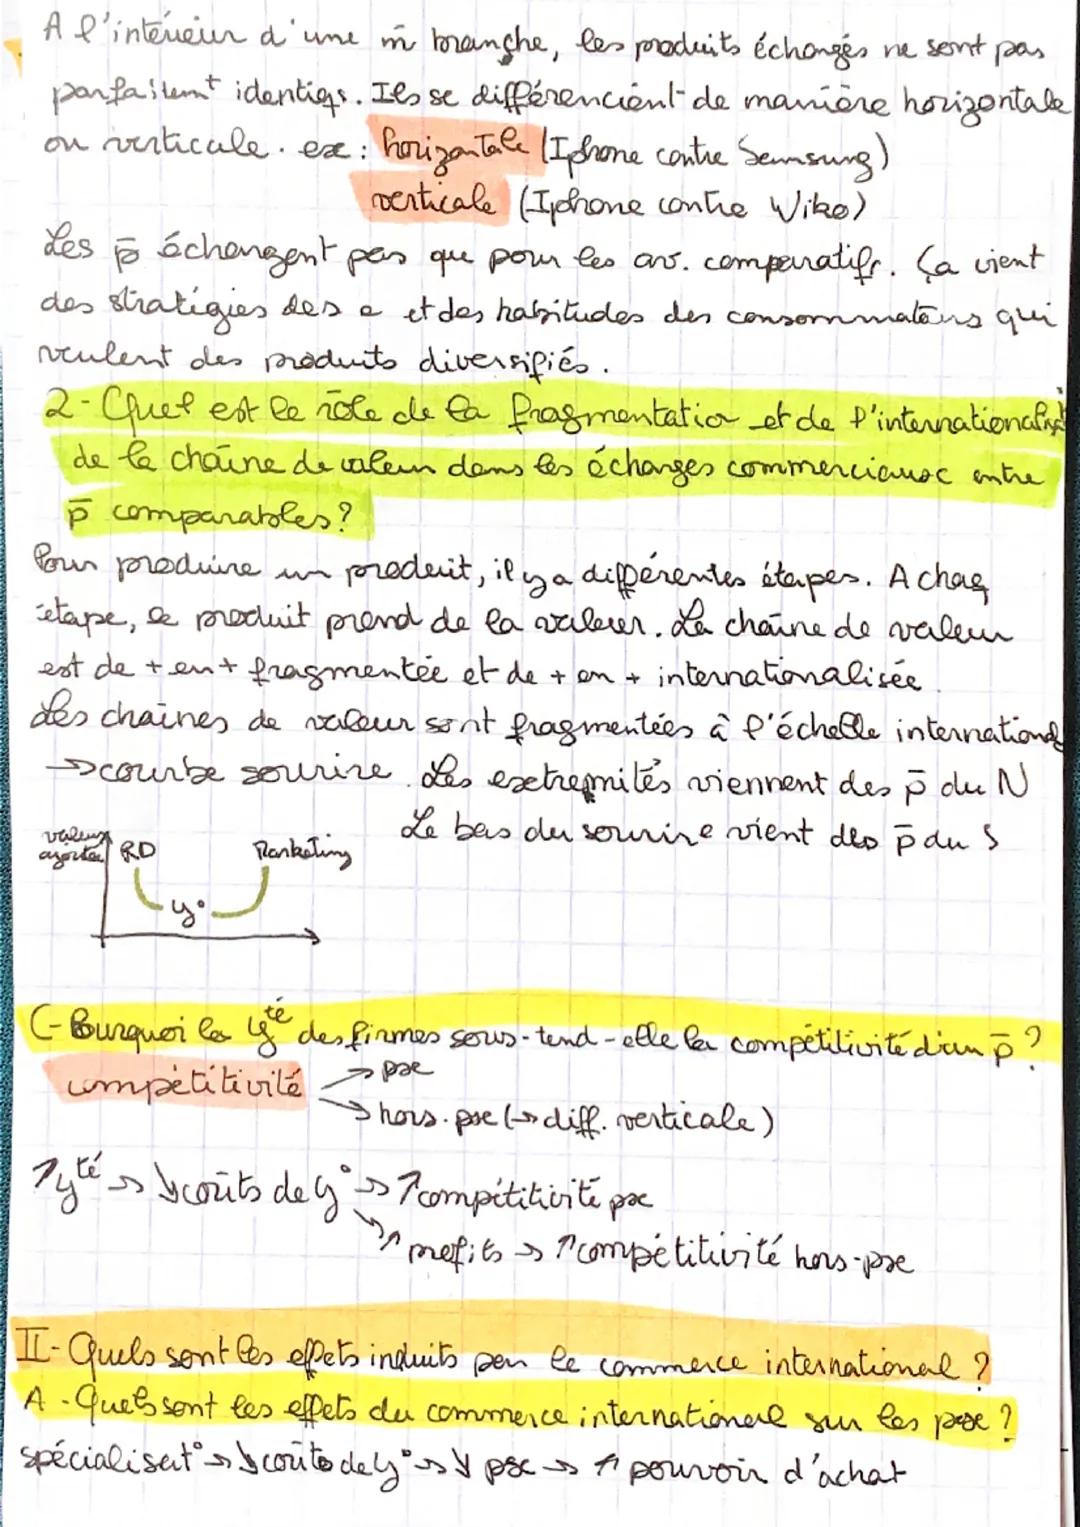 A l'intérieur d'une m̂ branche, les produits échangés ne sont pas
parfaitemt identiqs. Ils se différencient de manière horizontale
ou verticale. ex : horizontale (Iphone contre Samsung)
verticale (Iphone contre Wiko)
Les p̄ échangent pas que pour les av. comparatifs. Ça vient
des stratégies des e et des habitudes des consommateurs qui
veulent des produits diversifiés.
2- Quel est le rôle de la fragmentation et de l'internationalisat°
de la chaîne de valeur dans les échanges commerciaux entre
p̄ comparables ?
Pour produire un produit, il y a différentes étapes. A chaq
étape, le produit prend de la valeur. La chaîne de valeur
est de + en + fragmentée et de + en + internationalisée.
Les chaînes de valeur sont fragmentées à l'échelle international
→ courbe sourire. Les extremités viennent des p̄ du N
Le bas du sourire vient des p̄ du S
valeur
ajoutée
RD
Marketing
y°
C- Pourquoi la yté des firmes sous-tend-elle la compétitivité d'un p̄ ?
compétitivité → px
→ hors-px (→ diff. verticale)
↗ yté → ↘ coûts de y° → ↗ compétitivité px
→ ↗ profits → ↗ compétitivité hors-px
II- Quels sont les effets induits par le commerce international ?
A - Quels sont les effets du commerce international sur les px ?
spécialisat° → ↘ coûts de y° → ↘ px → ↗ pouvoir d'achat